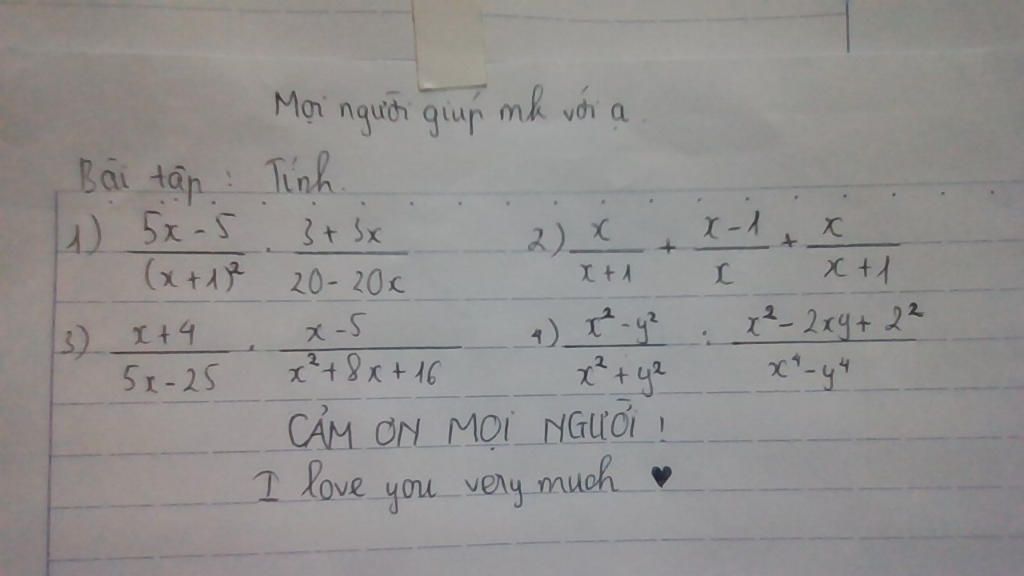 Mọi người giúp mk với ạ.
Bài tập : Tính.
1) (5x - 5)/(x + 1)² . (3 + 3x)/(20 - 20x) 2) x/(x + 1) + (x - 1)/x + x/(x + 1)
3) (x + 4)/(5x - 25) . (x - 5)/(x² + 8x + 16) 4) (x² - y²)/(x² + y²) : (x² - 2xy + 2²)/(x⁴ - y⁴)
CẢM ƠN MỌI NGƯỜI !
I love you very much ♥